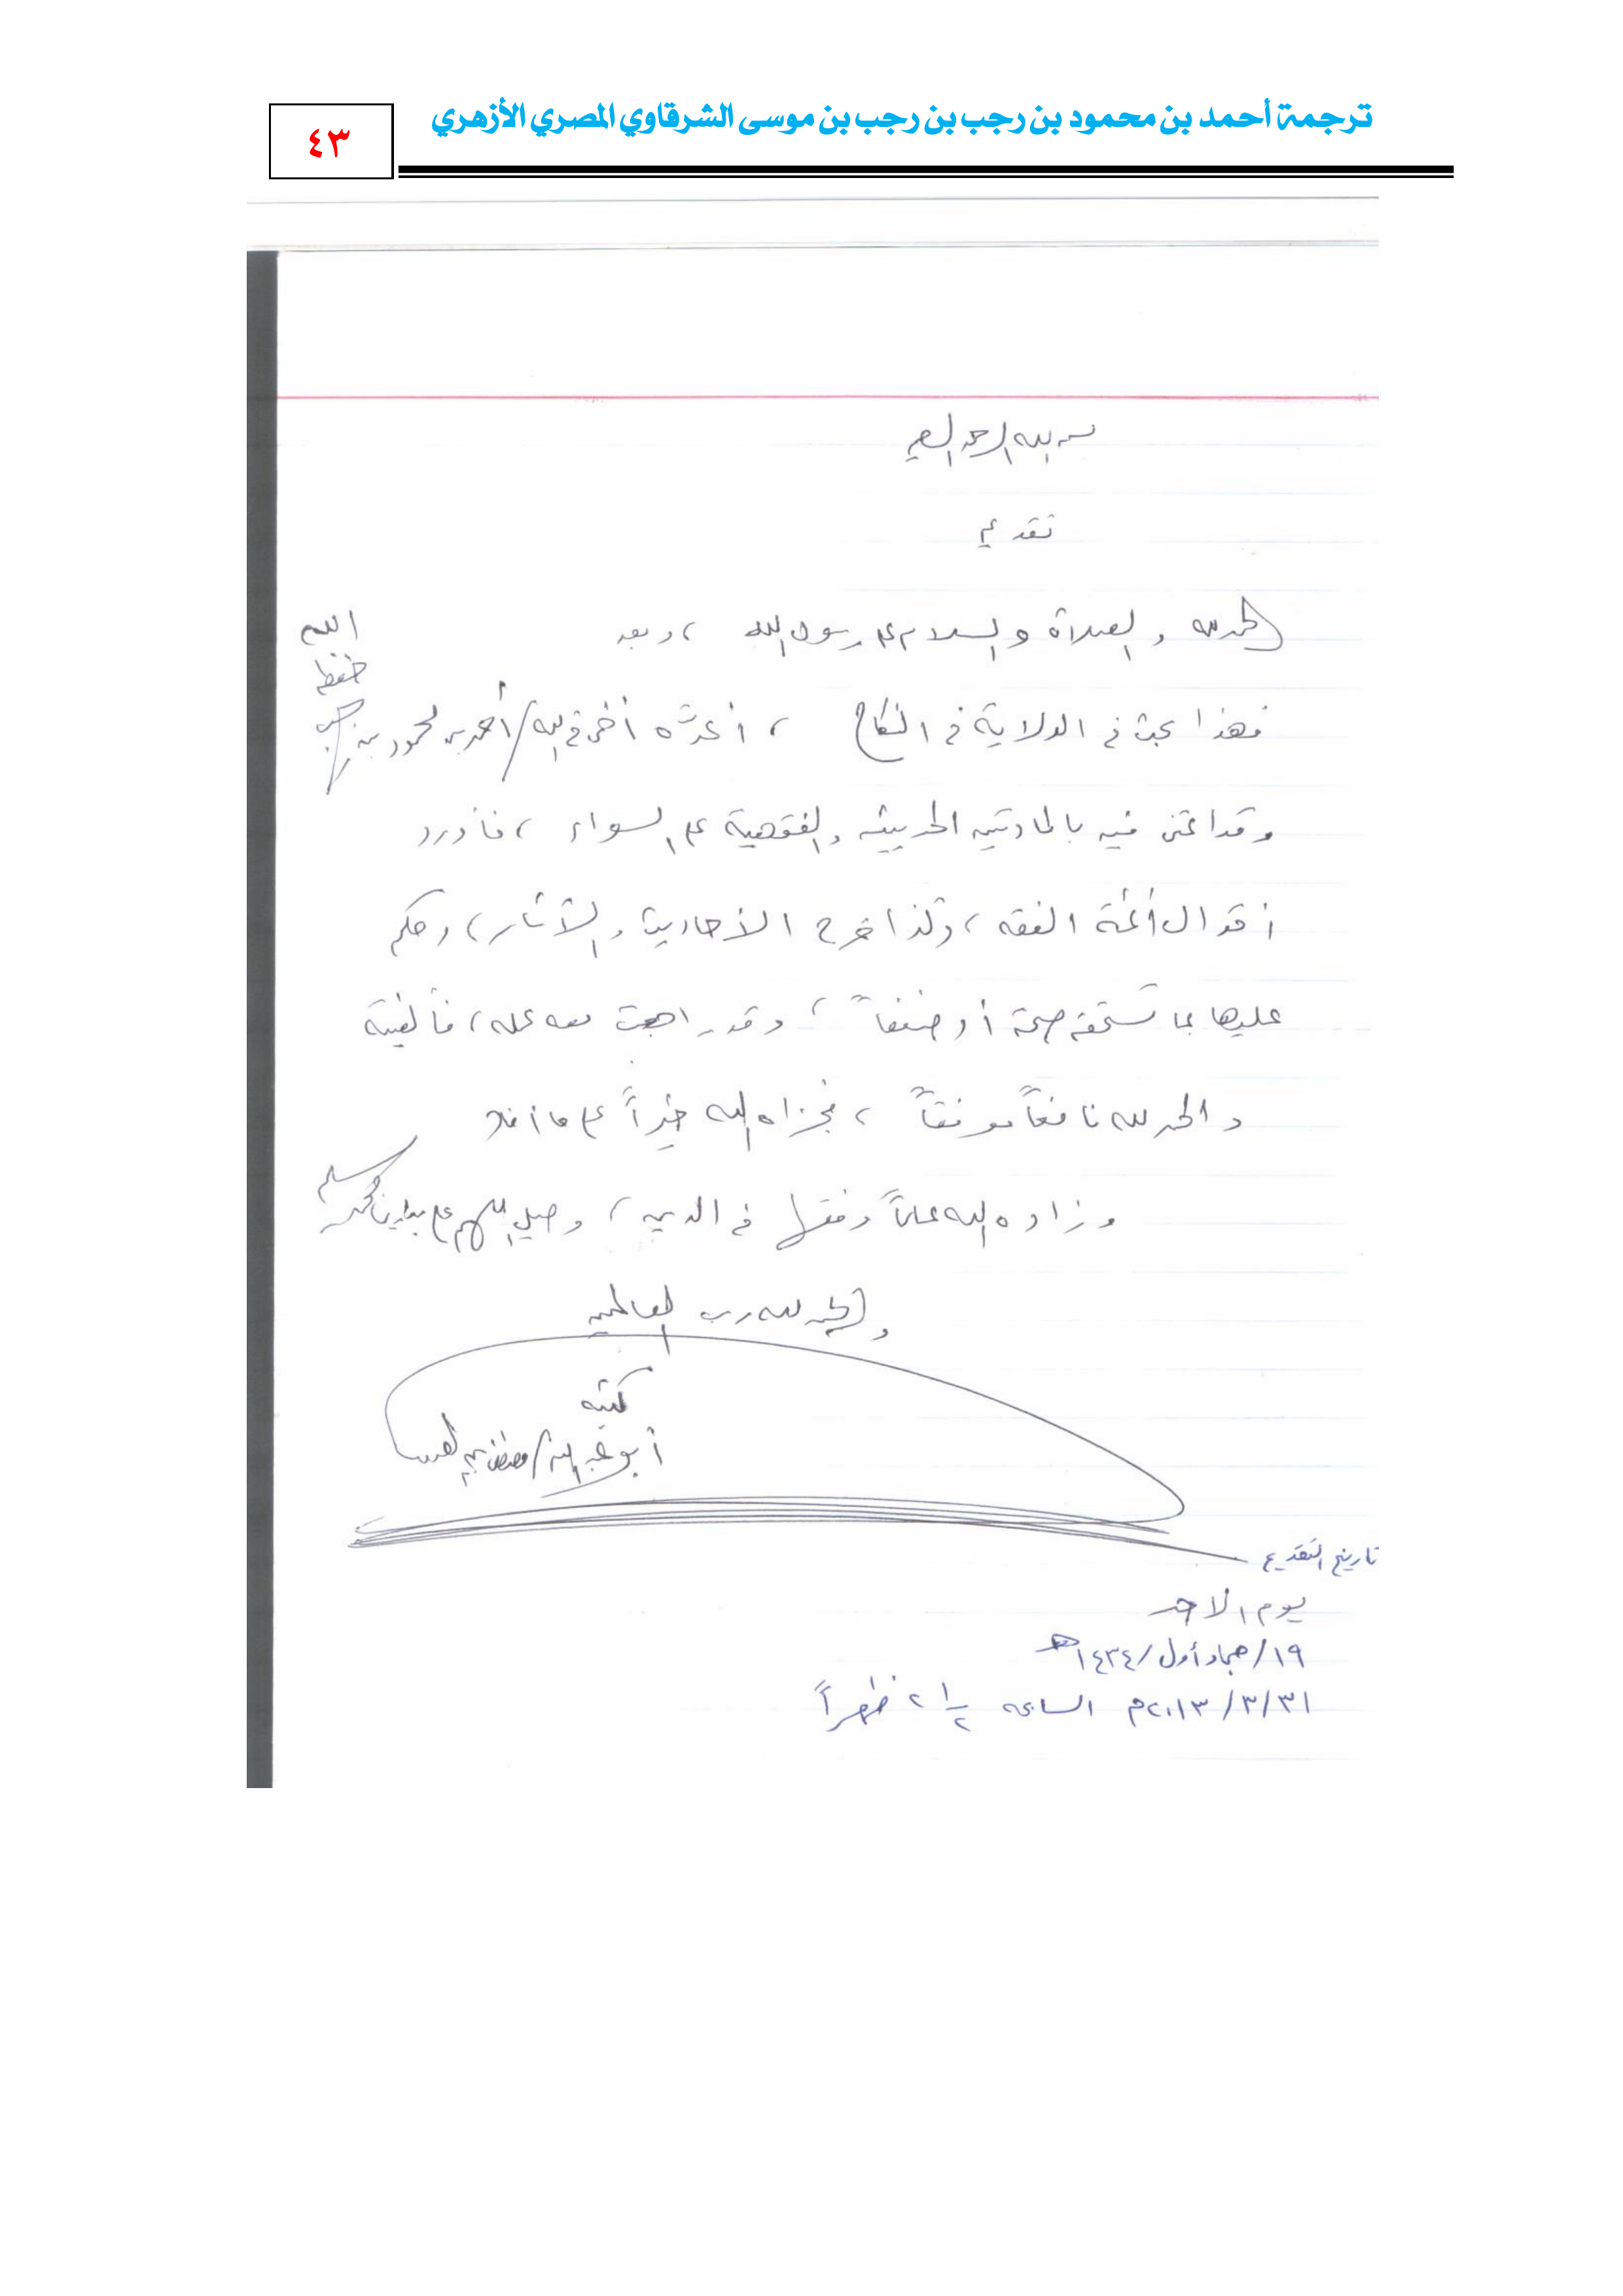 ترجمة أحمد بن محمود بن رجب بن رجب بن موسى الشرقاوي المصري الأزهري
٤٣
بسم الله الرحمن الرحيم
تقديم
الحمد لله والصلاة والسلام على رسول الله ، وبعد
فهذا بحث في الولاية في النكاح ، أعدَّه أخي في الله / أحمد بن محمود بن رجب حفظه الله
وقد اعتنى فيه بالمادتين الحديثية والفقهية على السواء ، فأورد
أقوال أئمة الفقه ، وكذا خرج الأحاديث والآثار ، وحكم
عليها بما تستحقه صحة أو ضعفاً ، وقد راجعت معه عمله ، فألفيته
والحمد لله نافعاً موفقاً ، فجزاه الله خيراً على ما أفاد
وزاده الله علماً وفقها في الدين ، وصلِّ اللهم على نبينا محمد وسلم
والحمد لله رب العالمين
كتبه
أبو عبد الله / مصطفى بن العدوي
تاريخ التقديم
يوم الاحد
١٩/ جماد أول / ١٤٣٤هـ
٣١ / ٣ / ٢٠١٣م الساعه ٢ ١/٢ ظهراً